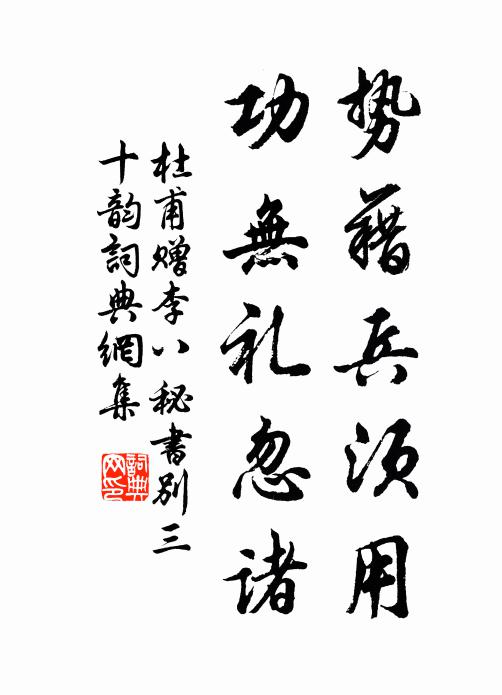 势藉兵须用
功無礼忽诸
杜甫赠李八秘書别三
十韵詞典網集
詞典
网印